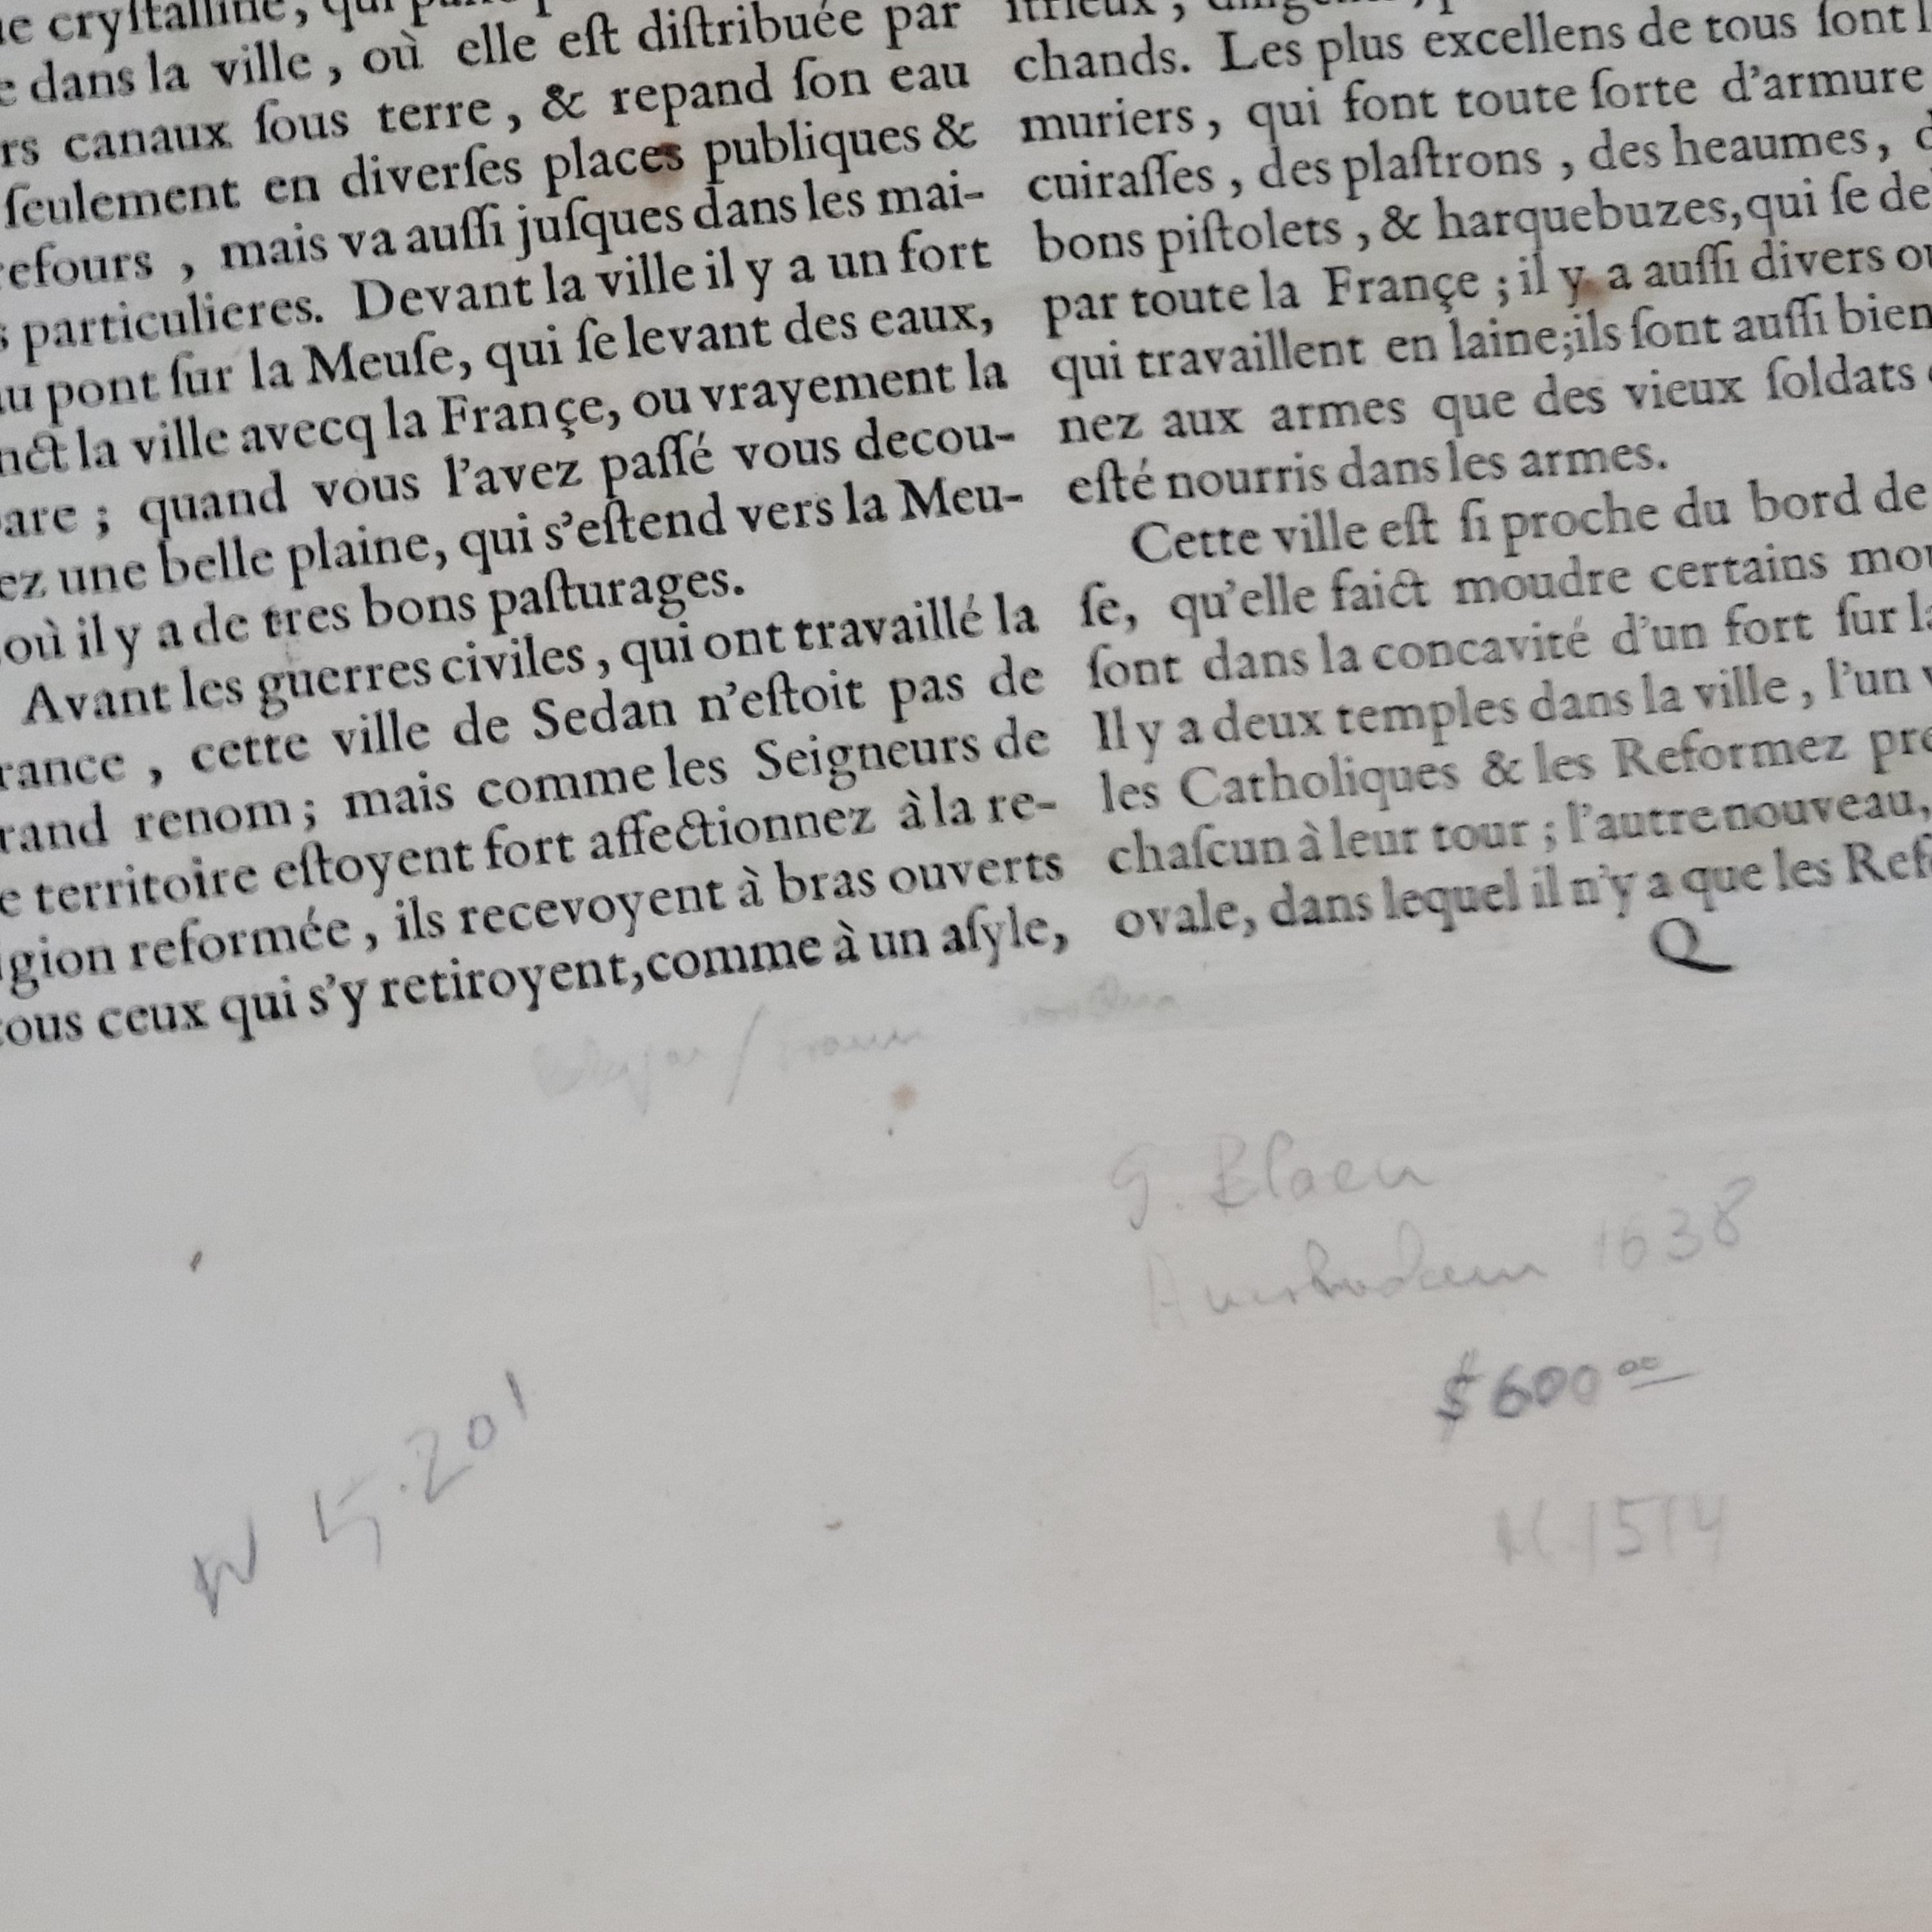 cryſtalline, qui
dans la ville, où elle eſt diſtribuée par
canaux ſous terre, & repand ſon eau
ſeulement en diverſes places publiques &
mais va auſſi juſques dans les mai-
particulieres. Devant la ville il y a un fort
pont ſur la Meuſe, qui ſe levant des eaux,
la ville avecq la Françe, ou vrayement la
quand vous l'avez paſſé vous decou-
une belle plaine, qui s'eſtend vers la Meu-
où il y a de tres bons paſturages.
Avant les guerres civiles, qui ont travaillé la
cette ville de Sedan n'eſtoit pas de
renom; mais comme les Seigneurs de
territoire eſtoyent fort affectionnez à la re-
gion reformée, ils recevoyent à bras ouverts
ceux qui s'y retiroyent, comme à un aſyle,
chands. Les plus excellens de tous ſont
muriers, qui font toute ſorte d'armure
cuiraſſes, des plaſtrons, des heaumes,
bons piſtolets, & harquebuzes, qui ſe de
par toute la Françe; il y a auſſi divers
qui travaillent en laine; ils ſont auſſi bien
nez aux armes que des vieux ſoldats
eſté nourris dans les armes.
Cette ville eſt ſi proche du bord de
ſe, qu'elle faict moudre certains
ſont dans la concavité d'un fort ſur
Il y a deux temples dans la ville, l'un
les Catholiques & les Reformez
chaſcun à leur tour; l'autre nouveau,
ovale, dans lequel il n'y a que les Ref
Q
G. Blaeu
Amsterdam 1638
$600.00
1514
W 5.201